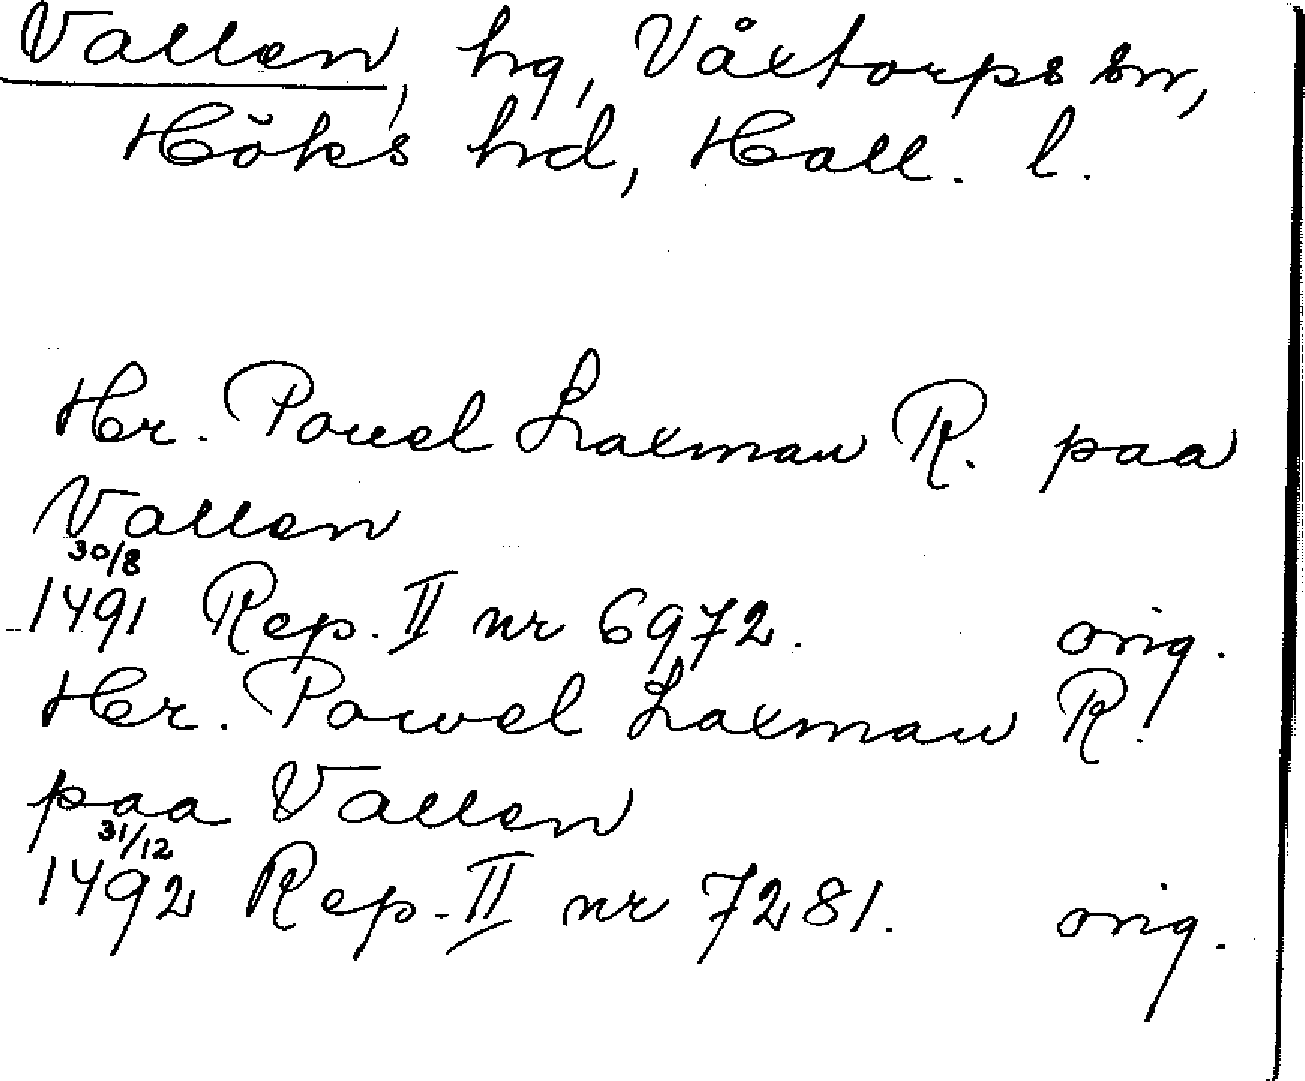 Vallen, hg, Våxtorps sn,
Höks hd, Hall. l.
Hr. Pouel Laxman R. paa
Vallen
30/8
1491 Rep. II nr 6972. orig.
Her. Powel Laxman R.
paa Vallen
31/12
1492 Rep. II nr 7281. orig.